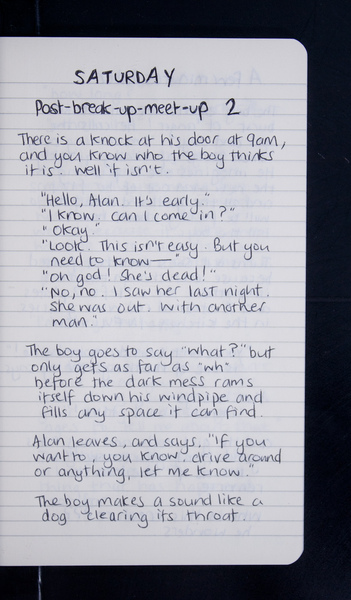 SATURDAY
Post-break-up-meet-up 2
There is a knock at his door at 9am,
and you know who the boy thinks
it is. Well it isn't.
"Hello, Alan. It's early."
"I know. Can I come in?"
"Okay."
"Look. This isn't easy. But you
need to know—"
"Oh god! She's dead!"
"No, no. I saw her last night.
She was out. With another
man."
The boy goes to say "what?" but
only gets as far as "wh"
before the dark mess rams
itself down his windpipe and
fills any space it can find.
Alan leaves, and says, "If you
want to, you know, drive around
or anything, let me know."
The boy makes a sound like a
dog clearing its throat.